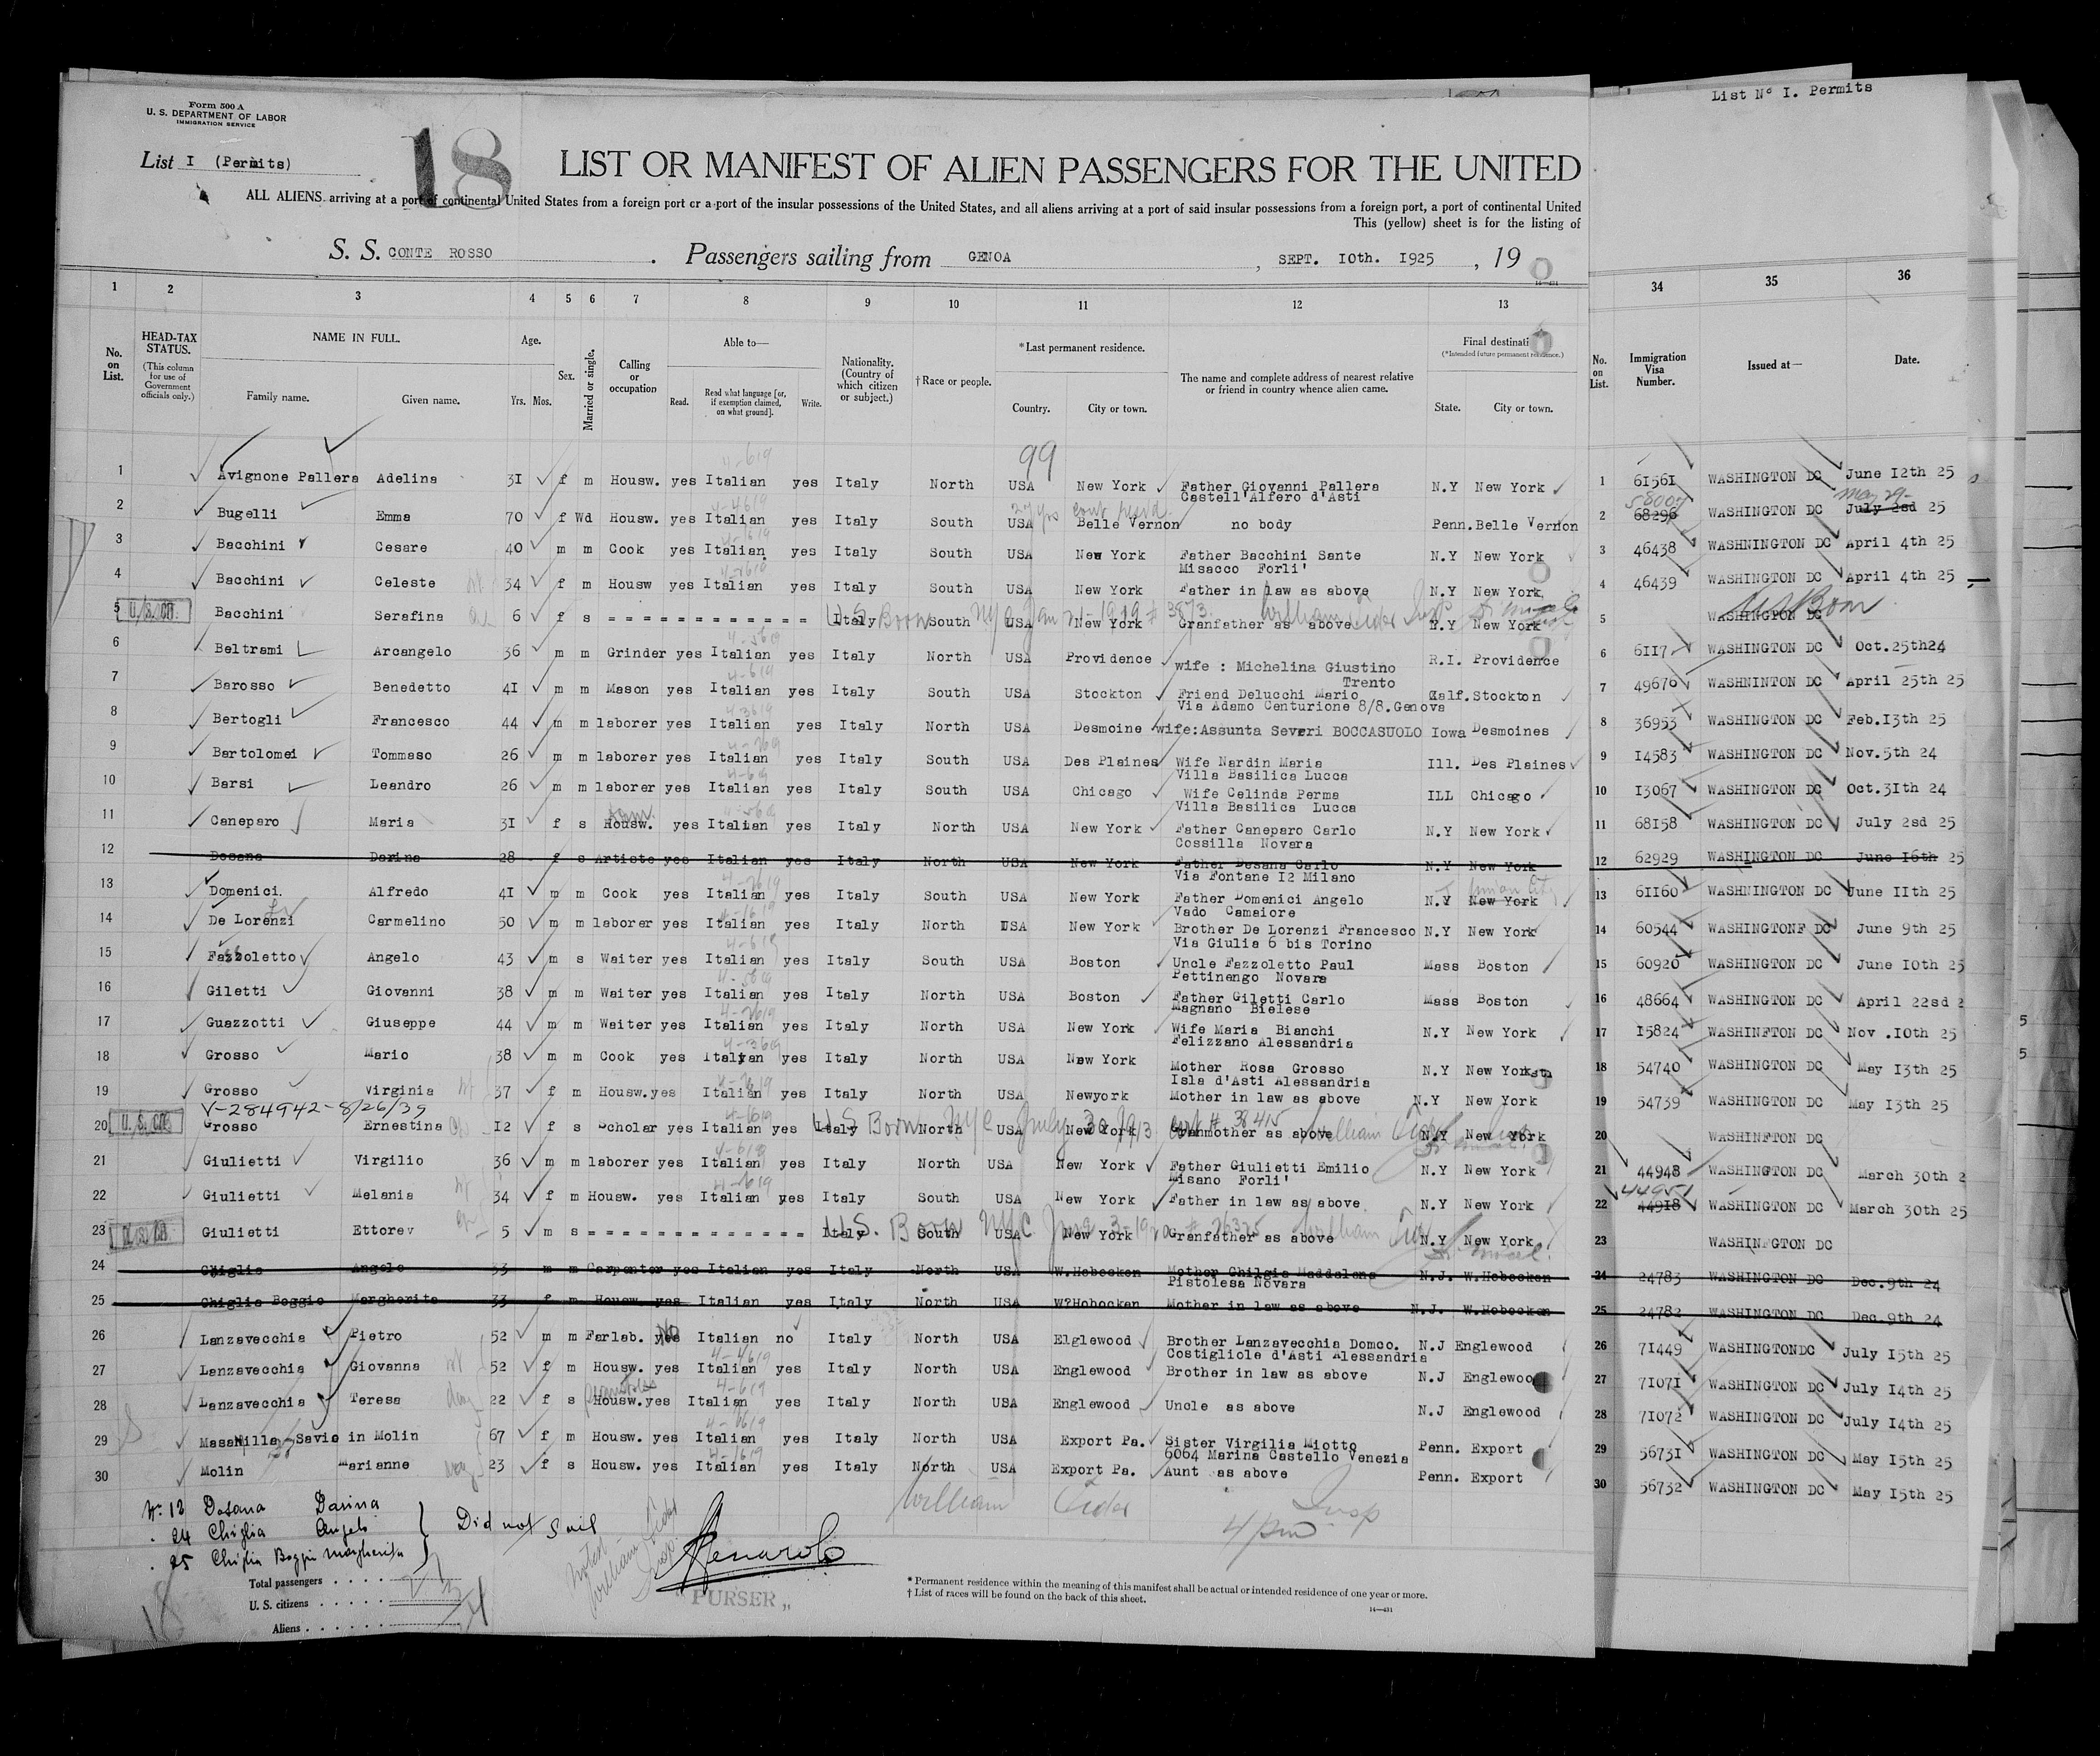 Form 500 A
U. S. DEPARTMENT OF LABOR
IMMIGRATION SERVICE
List I (Permits)
18
LIST OR MANIFEST OF ALIEN PASSENGERS FOR THE UNITED
ALL ALIENS arriving at a port of continental United States from a foreign port or a port of the insular possessions of the United States, and all aliens arriving at a port of said insular possessions from a foreign port, a port of continental United
This (yellow) sheet is for the listing of
S. S. CONTE ROSSO . Passengers sailing from GENOA , SEPT. IOth. I925 , 19
List Nº I. Permits
1 2 3 4 5 6 7 8 9 10 11 12 13 34 35 36
No. on List.
HEAD-TAX STATUS.
(This column for use of Government officials only.)
NAME IN FULL.
Family name. Given name.
Age.
Yrs. Mos.
Sex.
Married or single.
Calling or occupation
Able to—
Read. Read what language [or, if exemption claimed, on what ground]. Write.
Nationality. (Country of which citizen or subject.)
† Race or people.
*Last permanent residence.
Country. City or town.
The name and complete address of nearest relative or friend in country whence alien came.
Final destinati
(*Intended future permanent residence.)
State. City or town.
No. on List.
Immigration Visa Number.
Issued at—
Date.
99
1 Avignone Pallera Adelina 3I f m Housw. yes Italian yes Italy North USA New York Father Giovanni Pallera N.Y New York 1 6I56I WASHINGTON DC June I2th 25
Castell'Alfero d'Asti
2 Bugelli Emma 70 f Wd Housw. yes Italian yes Italy South USA Belle Vernon no body Penn. Belle Vernon 2 68296 58007 WASHINGTON DC July 2sd 25 may 29-
3 Bacchini Cesare 40 m m Cook yes Italian yes Italy South USA New York Father Bacchini Sante N.Y New York 3 46438 WASHNINGTON DC April 4th 25
Misacco Forli'
4 Bacchini Celeste 34 f m Housw yes Italian yes Italy South USA New York Father in law as above N.Y New York 4 46439 WASHINGTON DC April 4th 25
5 U.S. CIT. Bacchini Serafina 6 f s Italy South USA New York Granfather as above N.Y New York 5 WASHINGTON DC US Born
6 Beltrami Arcangelo 36 m m Grinder yes Italian yes Italy North USA Providence wife : Michelina Giustino R.I. Providence 6 6II7 WASHINGTON DC Oct.25th24
Trento
7 Barosso Benedetto 4I m m Mason yes Italian yes Italy South USA Stockton Friend Delucchi Mario Calf. Stockton 7 49670 WASHNINTON DC April 25th 25
Via Adamo Centurione 8/8.Genova
8 Bertogli Francesco 44 m m laborer yes Italian yes Italy North USA Desmoine wife:Assunta Severi BOCCASUOLO Iowa Desmoines 8 36953 WASHINGTON DC Feb.I3th 25
9 Bartolomei Tommaso 26 m m laborer yes Italian yes Italy South USA Des Plaines Wife Nardin Maria Ill. Des Plaines 9 I4583 WASHINGTON DC Nov.5th 24
Villa Basilica Lucca
10 Barsi Leandro 26 m m laborer yes Italian yes Italy South USA Chicago Wife Celinda Perma ILL Chicago 10 I3067 WASHINGTON DC Oct.3Ith 24
Villa Basilica Lucca
11 Caneparo Maria 3I f s Housw. yes Italian yes Italy North USA New York Father Caneparo Carlo N.Y New York 11 68I58 WASHINGTON DC July 2sd 25
Cossilla Novara
12 Dosana Darina 28 f s Artiste yes Italian yes Italy North USA New York Father Desana Carlo N.Y New York 12 62929 WASHINGTON DC June I6th 25
Via Fontane I2 Milano
13 Domenici. Alfredo 4I m m Cook yes Italian yes Italy South USA New York Father Domenici Angelo N.Y New York Union City 13 6II60 WASHNINGTON DC June IIth 25
Vado Camaiore
14 De Lorenzi Carmelino 50 m m laborer yes Italian yes Italy North USA New York Brother De Lorenzi Francesco N.Y New York 14 60544 WASHINGTONF DC June 9th 25
Via Giulia 6 bis Torino
15 Fazzoletto Angelo 43 m s Waiter yes Italian yes Italy South USA Boston Uncle Fazzoletto Paul Mass Boston 15 60920 WASHINGTON DC June I0th 25
Pettinengo Novara
16 Giletti Giovanni 38 m m Waiter yes Italian yes Italy North USA Boston Father Giletti Carlo Mass Boston 16 48664 WASHINGTON DC April 22sd 2
Magnano Bielese
17 Guazzotti Giuseppe 44 m m Waiter yes Italian yes Italy North USA New York Wife Maria Bianchi N.Y New York 17 I5824 WASHINFTON DC Nov .I0th 25
Felizzano Alessandria
18 Grosso Mario 38 m m Cook yes Italyan yes Italy North USA New York Mother Rosa Grosso N.Y New York 18 54740 WASHINGTON DC May I3th 25
Isla d'Asti Alessandria
19 Grosso Virginia 37 f m Housw. yes Italian yes Italy North USA Newyork Mother in law as above N.Y New York 19 54739 WASHINGTON DC May I3th 25
V-284942-8/26/39
20 U.S. CIT. Grosso Ernestina I2 f s Scholar yes Italian yes Italy North USA New York Granmother as above N.Y New York 20 WASHINFTON DC
U.S Born NYC July 30 1913 Cert # 38415 William
21 Giulietti Virgilio 36 m m laborer yes Italian yes Italy North USA New York Father Giulietti Emilio N.Y New York 21 44948 WASHINGTON DC March 30th 2
Misano Forli'
22 Giulietti Melania 34 f m Housw. yes Italian yes Italy South USA New York Father in law as above N.Y New York 22 449I8 44951 WASHINGTON DC March 30th 25
23 U.S. CIT. Giulietti Ettorev 5 m s Italy South USA New York Granfather as above N.Y New York 23 WASHINFGTON DC
U.S. Born NYC
24 Chiglia Angelo 33 m m Carpenter yes Italian yes Italy North USA W.Hobocken Mother Chilgia Maddalena N.J. W.Hobocken 24 24783 WASHINGTON DC Dec.9th 24
Pistolesa Novara
25 Chiglia Boggio Margherita 33 f m Housw. yes Italian yes Italy North USA W?Hobocken Mother in law as above N.J. W.Hobocken 25 24782 WASHINGTON DC Dec.9th 24
26 Lanzavecchia Pietro 52 m m Farlab. yes No Italian no Italy North USA Elglewood Brother Lanzavecchia Domco. N.J Englewood 26 7I449 WASHINGTONDC July I5th 25
Costigliole d'Asti Alessandria
27 Lanzavecchia Giovanna 52 f m Housw. yes Italian yes Italy North USA Englewood Brother in law as above N.J Englewood 27 7I07I WASHINGTON DC July I4th 25
28 Lanzavecchia Teresa 22 f s Housw. yes Italian yes Italy North USA Englewood Uncle as above N.J Englewood 28 7I072 WASHINGTON DC July I4th 25
29 Masanilla Savio in Molin 67 f m Housw. yes Italian yes Italy North USA Export Pa. Sister Virgilia Miotto Penn. Export 29 5673I WASHINGTON DC May I5th 25
6064 Marina Castello Venezia
30 Molin Marianne 23 f s Housw. yes Italian yes Italy North USA Export Pa. Aunt as above Penn. Export 30 56732 WASHINGTON DC May I5th 25
Nr 12 Dosana Darina
. 24 Chiglia Angelo
. 25 Chiglia Boggio Margherita
Did not sail
William Insp
4 pm
Total passengers
U. S. citizens
Aliens
"PURSER"
* Permanent residence within the meaning of this manifest shall be actual or intended residence of one year or more.
† List of races will be found on the back of this sheet.
14—431